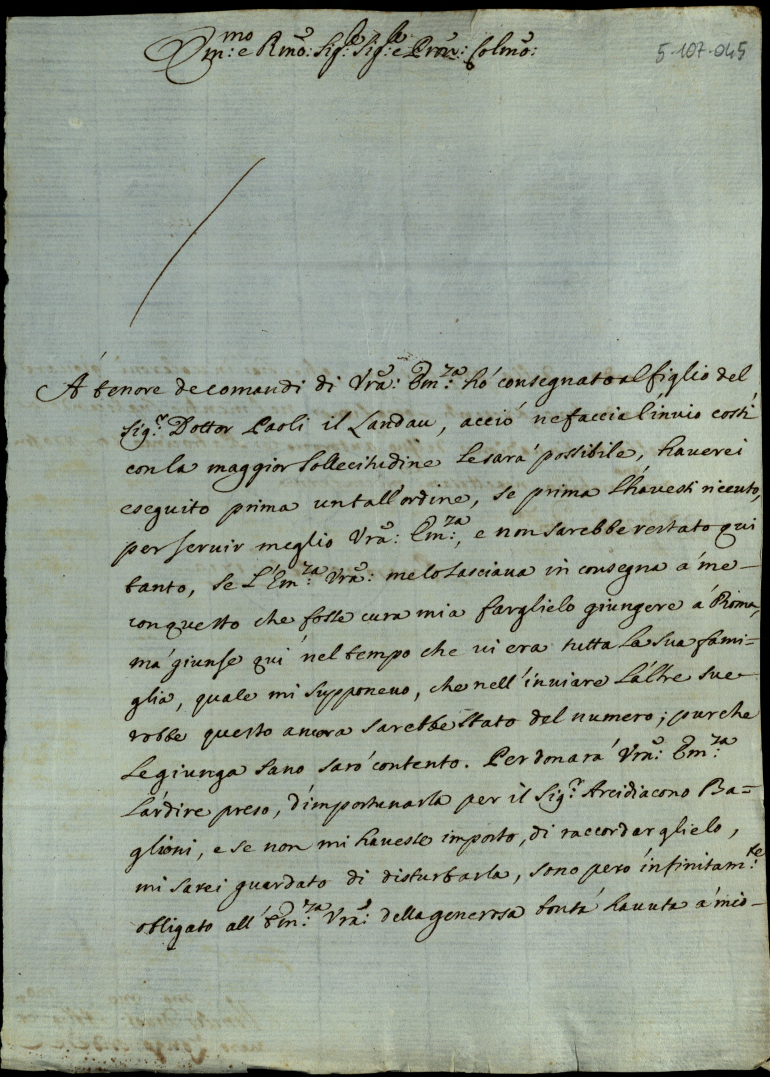 Em:mo e Rmo: Sig:le Sig:le e Pron: Colmo:
5-107-045
A' tenore de comandi di Vra: Em:za hò consegnato al figlio del
Sig:r Dottor Paoli il Landau, acciò ne faccia l'inuio costì
con la maggior sollecitudine le sarà possibile, hauerei
eseguito prima un tall'ordine, se prima l'hauessi riceuto,
per seruir meglio Vra: Em:za, e non sarebbe restato qui
tanto, se l'Em:za Vra: me lo lasciaua in consegna a' me-
con questo che fosse cura mia farglielo giungere a' Roma,
mà giunse quì nel tempo che ui era tutta la sua fami-
glia, quale mi supponeuo, che nell'inuiare l'altre sue
robbe questo ancora sarebbe stato del numero; purche
le giunga sano sarò contento. Perdonarà Vra: Em:za
l'ardire preso, d'importunarla per il Sig:r Arcidiacono Ba=
glioni, e se non mi hauesse imposto, di raccordarglielo,
mi sarei guardato di disturbarla, sono però infinitam:te
obligato all'Em:za Vra: della generosa bontà hauuta a' mio-